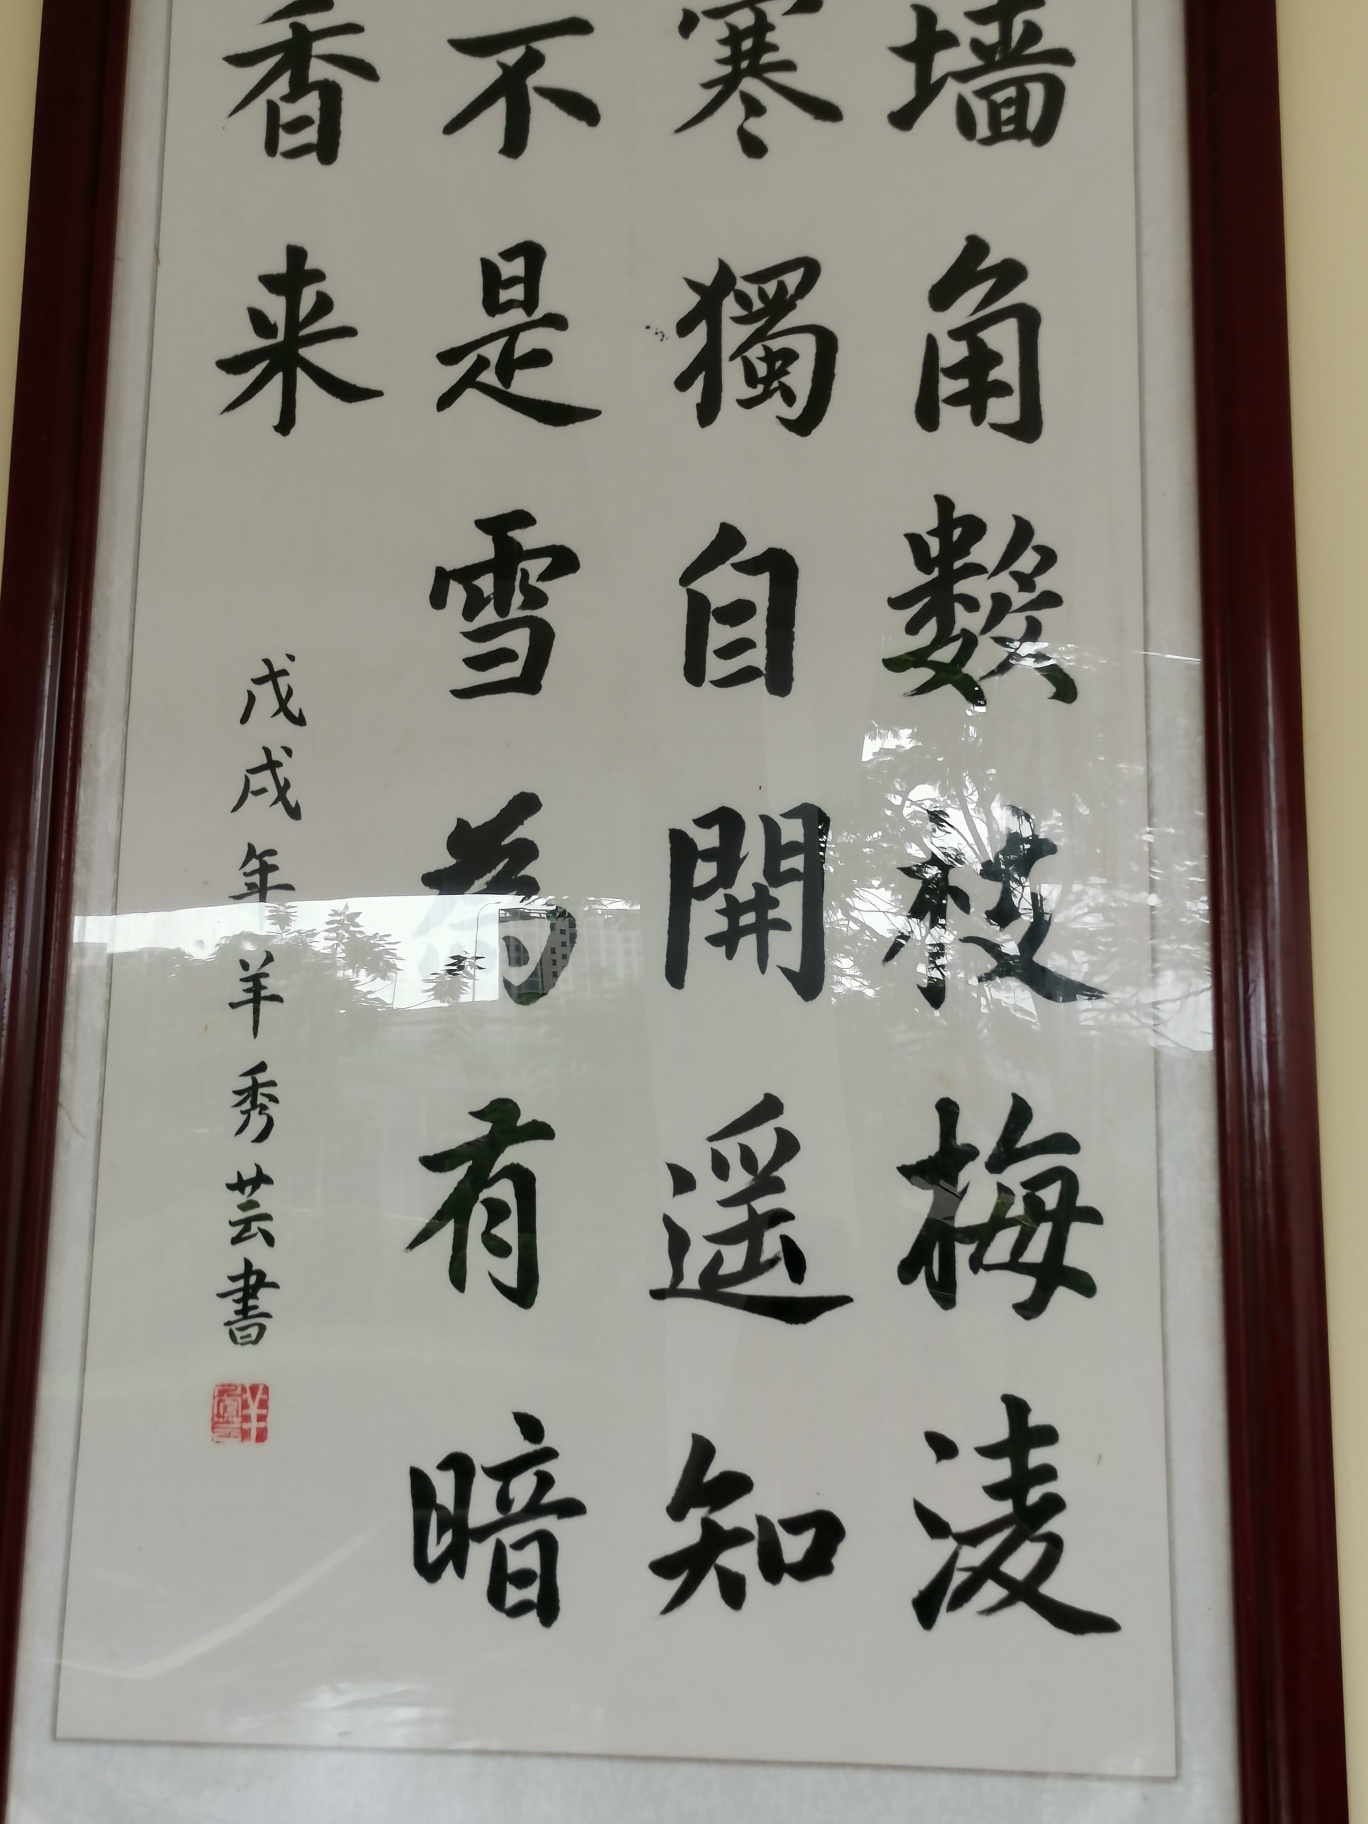 墙角數枝梅凌
寒獨自開遥知
不是雪為有暗
香来
戊戌年羊秀芸書